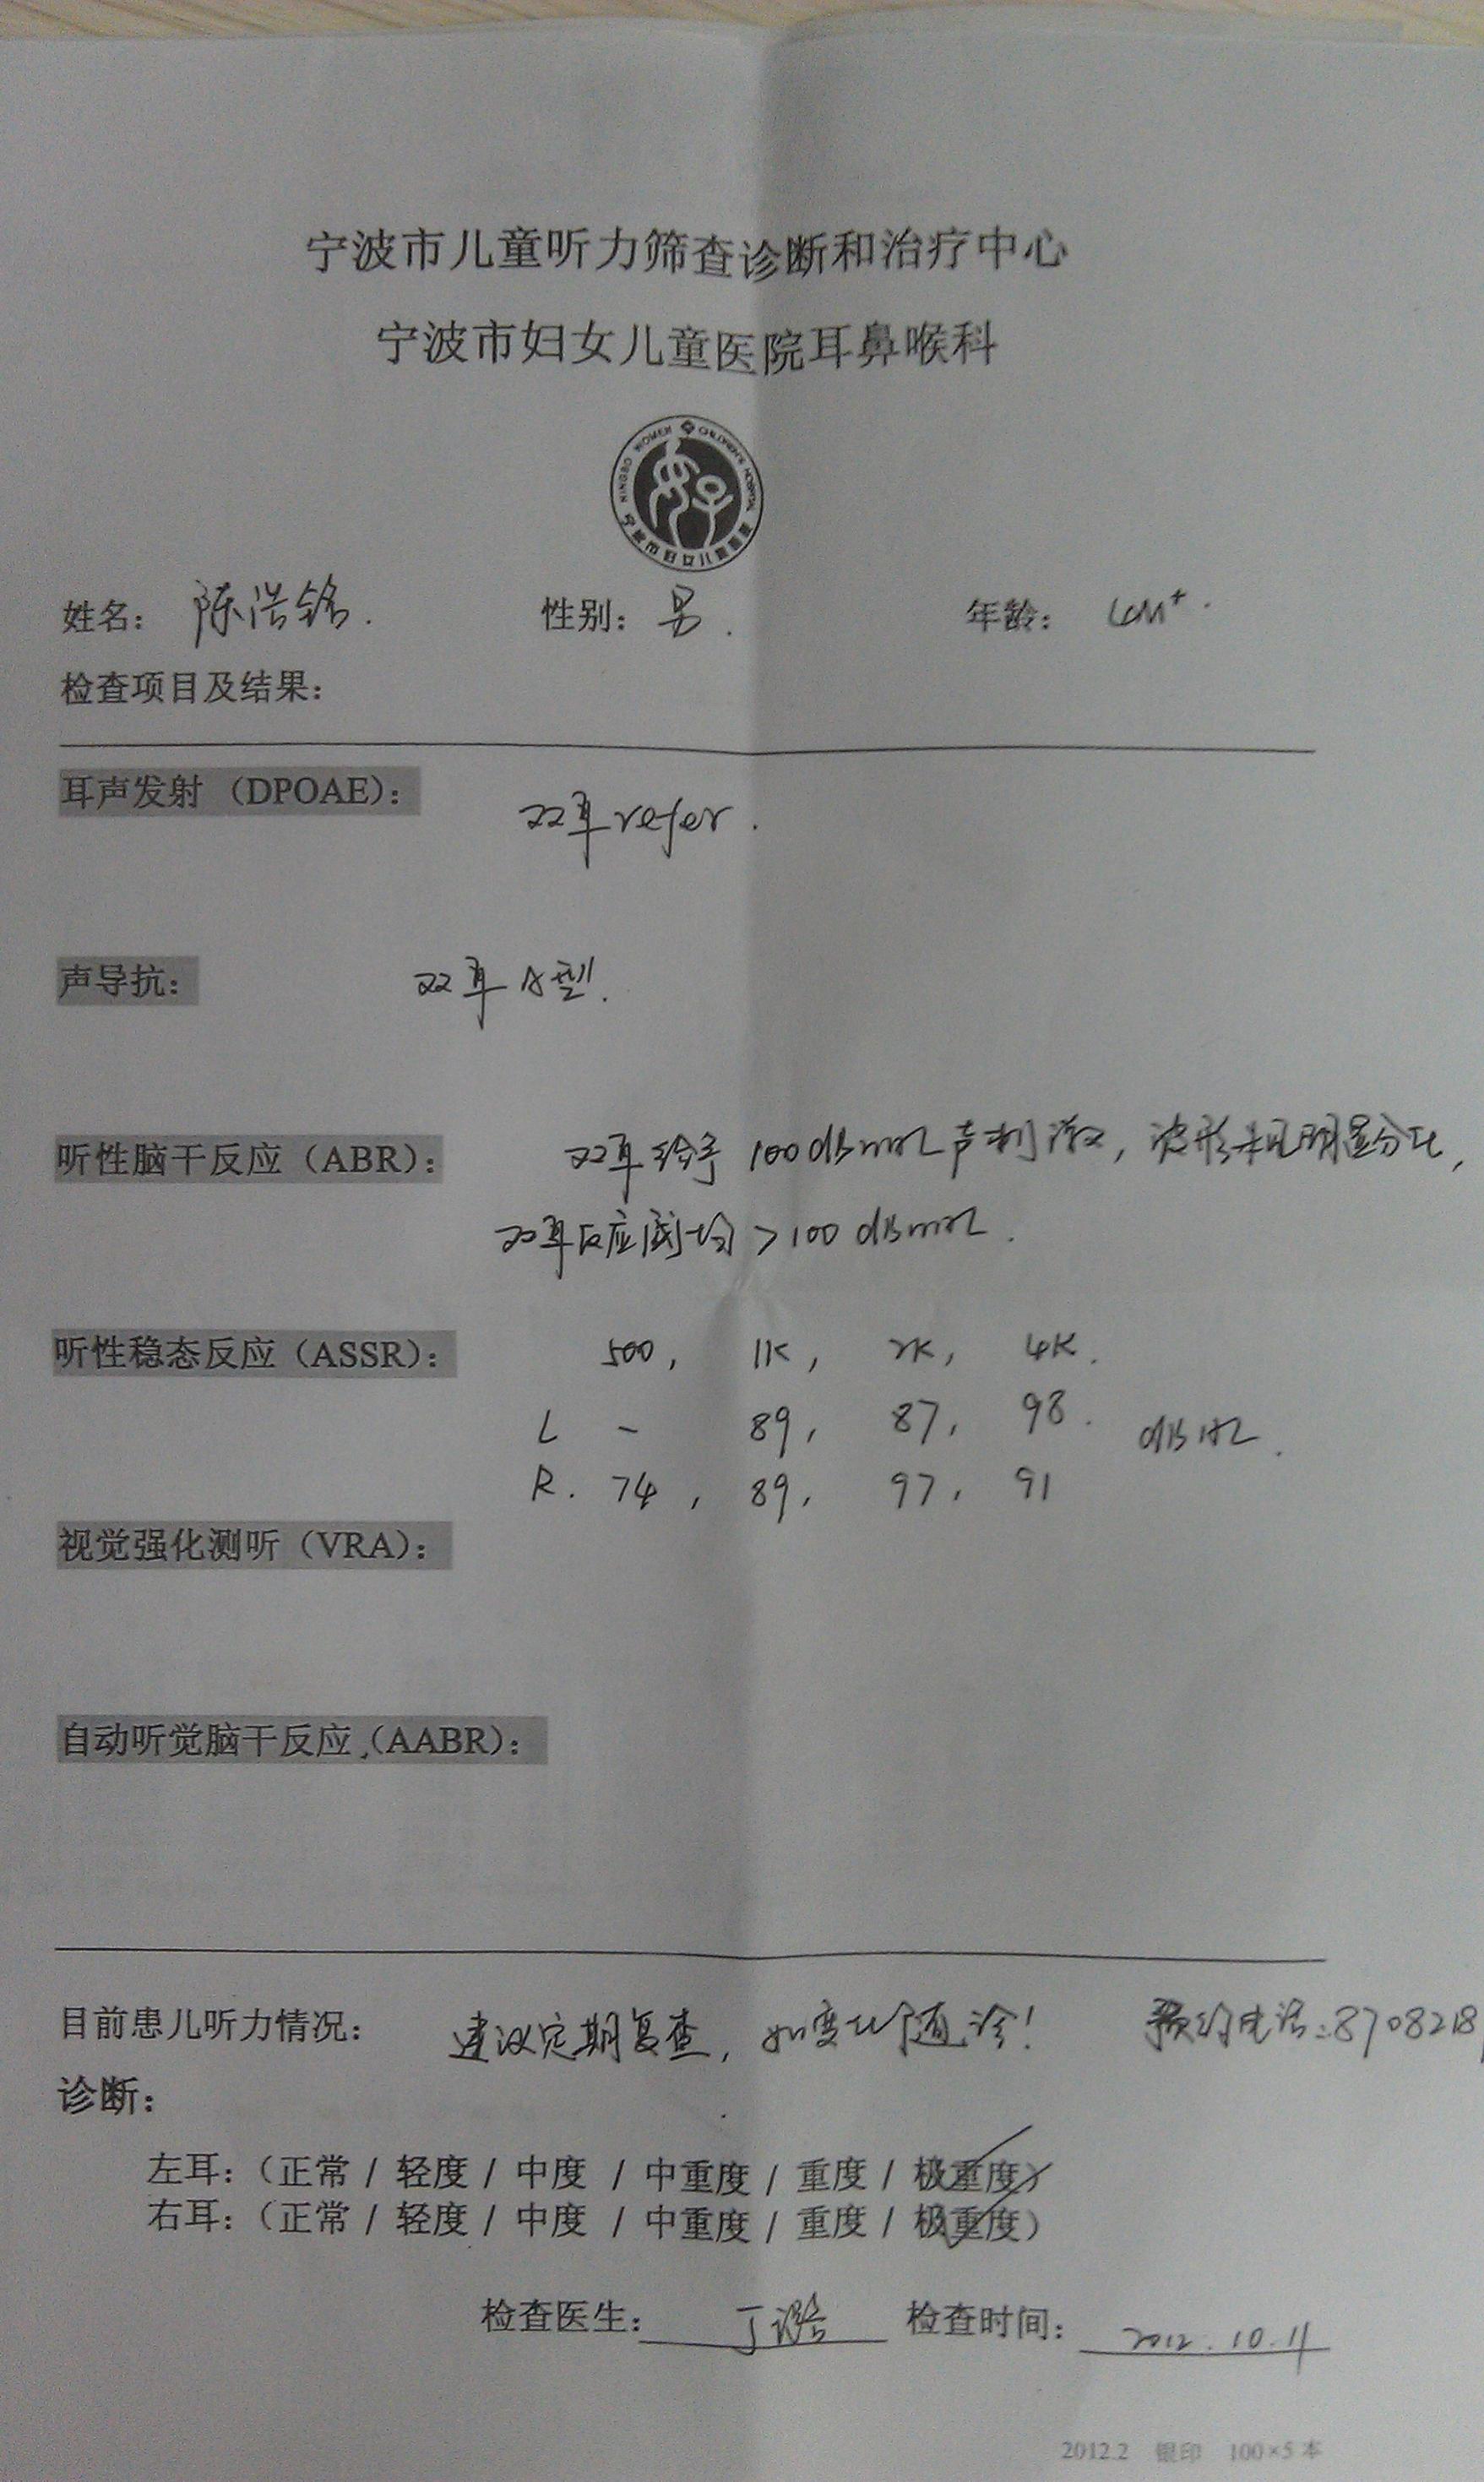 宁波市儿童听力筛查诊断和治疗中心
宁波市妇女儿童医院耳鼻喉科
NINGBO WOMEN CHILDREN'S HOSPITAL
宁波市妇女儿童医院
姓名： 陈浩铭. 性别：男. 年龄：
检查项目及结果：
耳声发射（DPOAE）： 双耳refer.
声导抗： 双耳A型.
听性脑干反应（ABR）： 双耳给予100dBnHL声刺激，波形未见明显分化，
双耳反应阈均>100dBnHL.
听性稳态反应（ASSR）： 500, 1K, 2K, 4K.
L - 89, 87, 98. dBHL.
R. 74, 89, 97, 91
视觉强化测听（VRA）：
自动听觉脑干反应（AABR）：
目前患儿听力情况： 建议定期复查，如变化随诊！ 预约电话：8708218
诊断：
左耳：（正常 / 轻度 / 中度 / 中重度 / 重度 / 极重度）
右耳：（正常 / 轻度 / 中度 / 中重度 / 重度 / 极重度）
检查医生： 丁 检查时间： 2012.10.11
2012.2 银印 100×5本